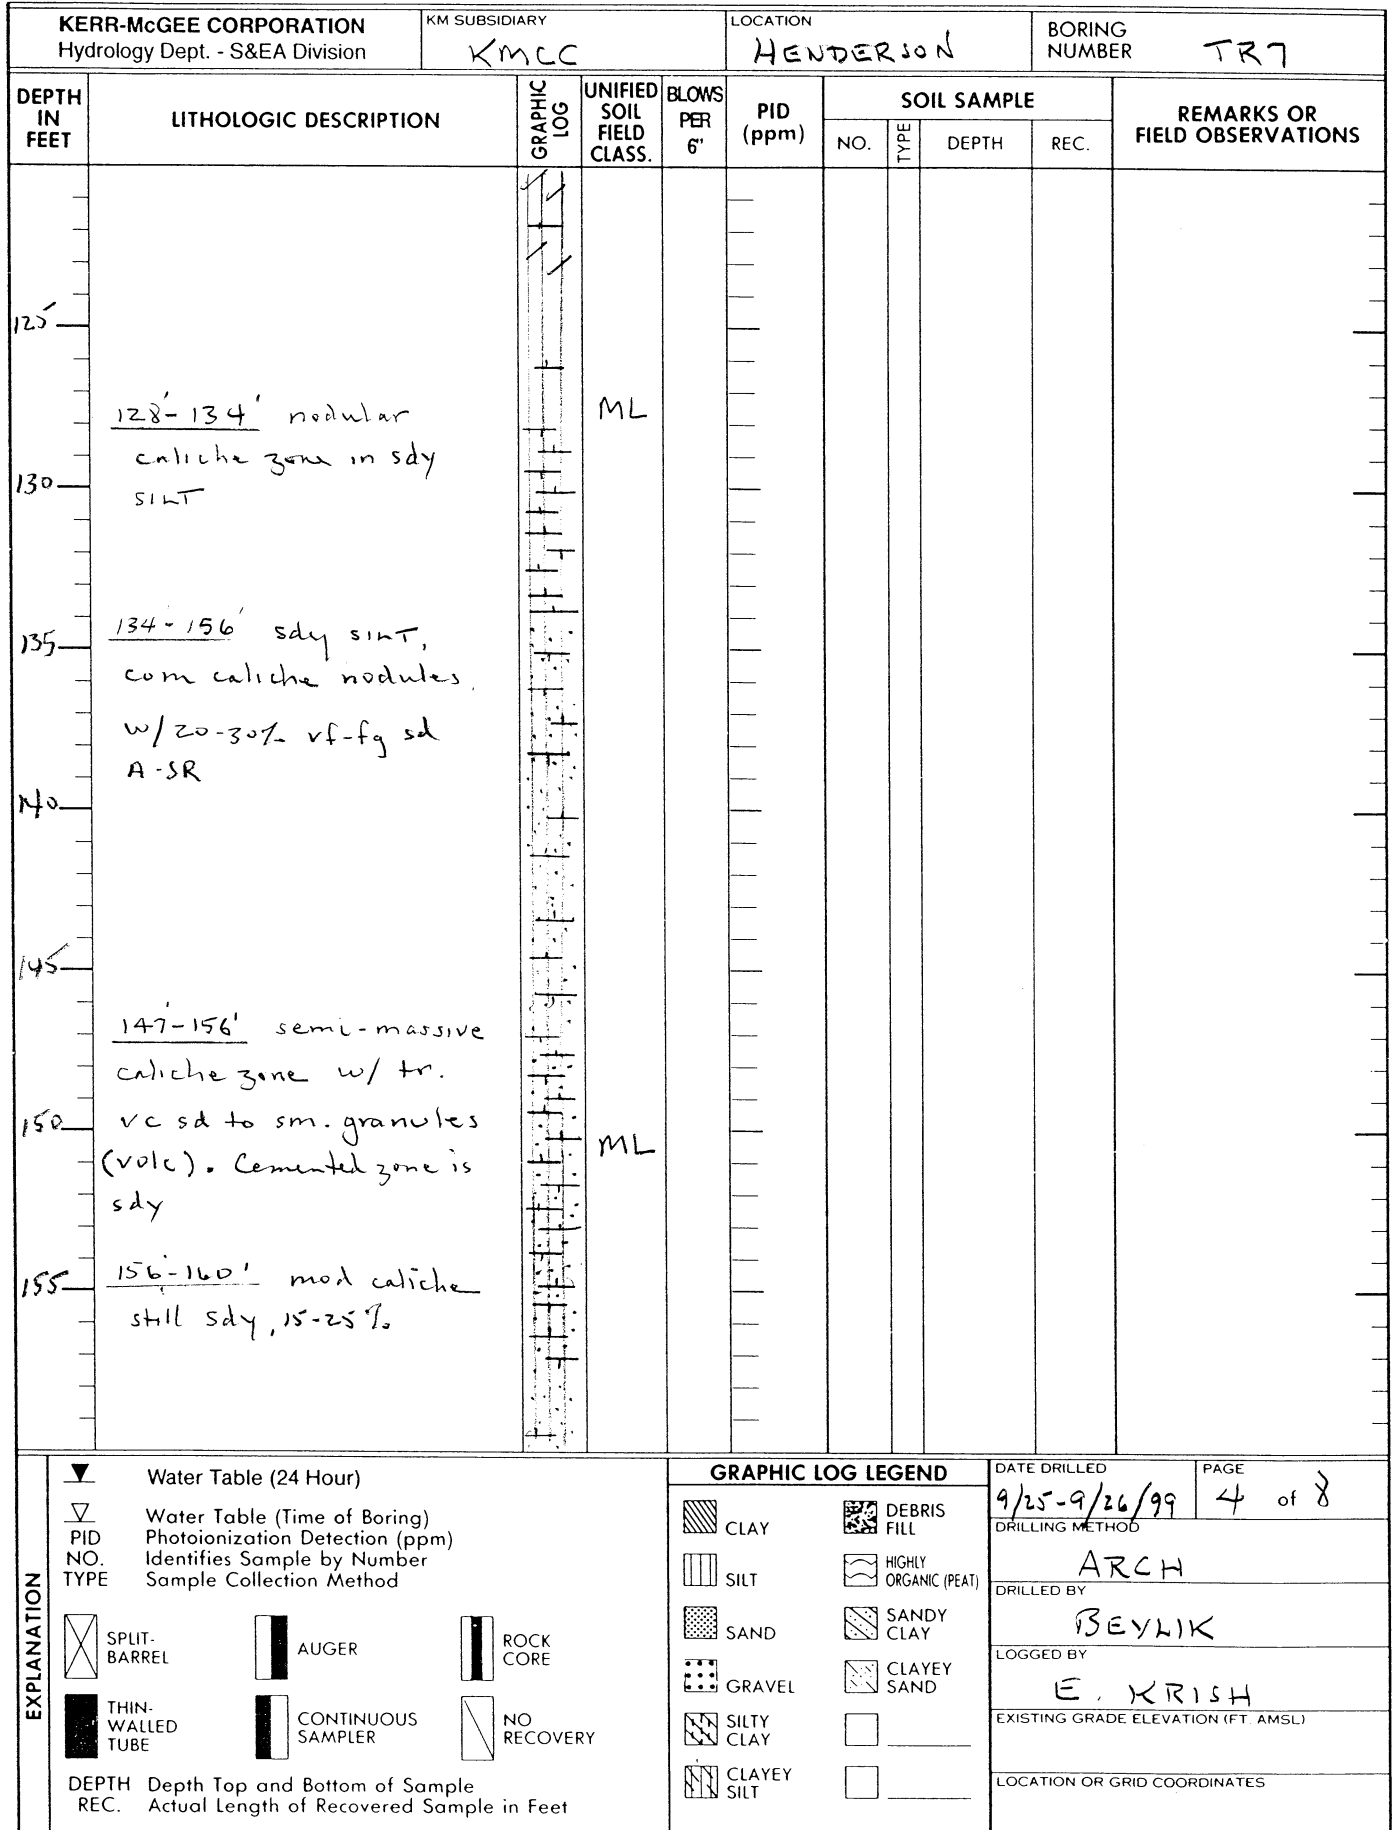 KERR-McGEE CORPORATION
Hydrology Dept. - S&EA Division
KM SUBSIDIARY
KMCC
LOCATION
HENDERSON
BORING NUMBER
TR7
DEPTH IN FEET
LITHOLOGIC DESCRIPTION
GRAPHIC LOG
UNIFIED SOIL FIELD CLASS.
BLOWS PER 6"
PID (ppm)
SOIL SAMPLE
NO.
TYPE
DEPTH
REC.
REMARKS OR FIELD OBSERVATIONS
125
128'-134' nodular
caliche zone in sdy
SILT
ML
130
134-156' sdy SILT,
com caliche nodules,
w/20-30% vf-fg sd
A-SR
135
140
145
147'-156' semi-massive
caliche zone w/ tr.
vc sd to sm. granules
(volc). Cemented zone is
sdy
150
ML
156'-160' mod caliche
still sdy, 15-25%
155
EXPLANATION
Water Table (24 Hour)
Water Table (Time of Boring)
PID Photoionization Detection (ppm)
NO. Identifies Sample by Number
TYPE Sample Collection Method
SPLIT-BARREL
AUGER
ROCK CORE
THIN-WALLED TUBE
CONTINUOUS SAMPLER
NO RECOVERY
DEPTH Depth Top and Bottom of Sample
REC. Actual Length of Recovered Sample in Feet
GRAPHIC LOG LEGEND
CLAY
DEBRIS FILL
SILT
HIGHLY ORGANIC (PEAT)
SAND
SANDY CLAY
GRAVEL
CLAYEY SAND
SILTY CLAY
CLAYEY SILT
DATE DRILLED
9/25-9/26/99
PAGE
4 of 8
DRILLING METHOD
ARCH
DRILLED BY
BEYLIK
LOGGED BY
E. KRISH
EXISTING GRADE ELEVATION (FT. AMSL)
LOCATION OR GRID COORDINATES